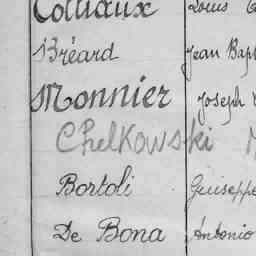 Colliaux Louis
Bréard Jean Bap
Monnier Joseph
Chelkowski
Bortoli Guiseppe
De Bona Antonio